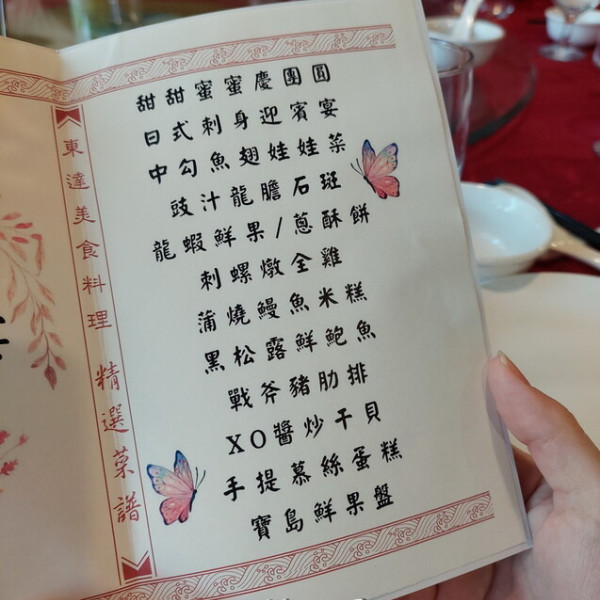 甜甜蜜蜜慶團圓
日式刺身迎賓宴
中勾魚翅娃娃菜
豉汁龍膽石斑
龍蝦鮮果/蔥酥餅
刺螺燉全雞
蒲燒鰻魚米糕
黑松露鮮鮑魚
戰斧豬肋排
XO醬炒干貝
手提慕絲蛋糕
寶島鮮果盤
東達美食料理 精選菜譜